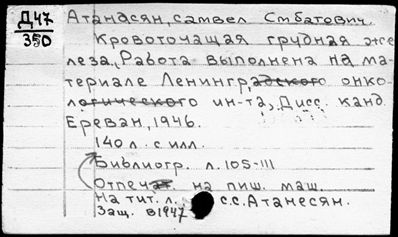 Д47
350
Атанасян, самвел Стбатович.
Кровоточащая грудная же
леза., Работа выполнена на ма-
териале Ленинградского онко-
логического ин-та, Дисс. канд
Ереван, 1946.
140 л. с илл.
Библиогр. л. 105-111
Отпечат. на пиш. маш.
На тит. л. с.с. Атанесян.
Защ. в1947